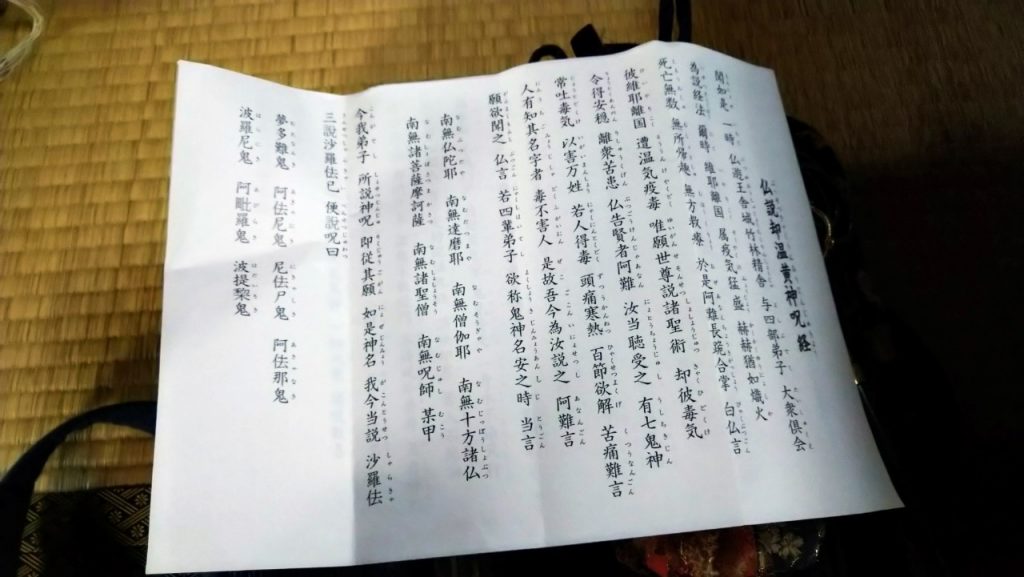 仏説却温黄神呪経
聞如是 一時 仏遊王舎城竹林精舎 与四部弟子 大衆俱会
為説経法 爾時 維耶離国 属疫気猛盛 赫赫猶如熾火
死亡無数 無所帰趣 無方救療 於是阿難長跪合掌 白仏言
彼維耶離国 遭温気疫毒 唯願世尊説諸聖術 却彼毒気
令得安穏 離衆苦患 仏告賢者阿難 汝当聴受之 有七鬼神
常吐毒気 以害万姓 若人得毒 頭痛寒熱 百節欲解 苦痛難言
人有知其名字者 毒不害人 是故吾今為汝説之 阿難言
願欲聞之 仏言 若四輩弟子 欲称鬼神名安之時 当言
南無仏陀耶 南無達磨耶 南無僧伽耶 南無十方諸仏
南無諸菩薩摩訶薩 南無諸聖僧 南無呪師 某甲
今我弟子 所説神呪 即従其願 如是神名 我今当説 沙羅佉
三説沙羅佉已 便説呪曰
夢多難鬼 阿佉尼鬼 尼佉尸鬼 阿佉那鬼
波羅尼鬼 阿毗羅鬼 波提棃鬼